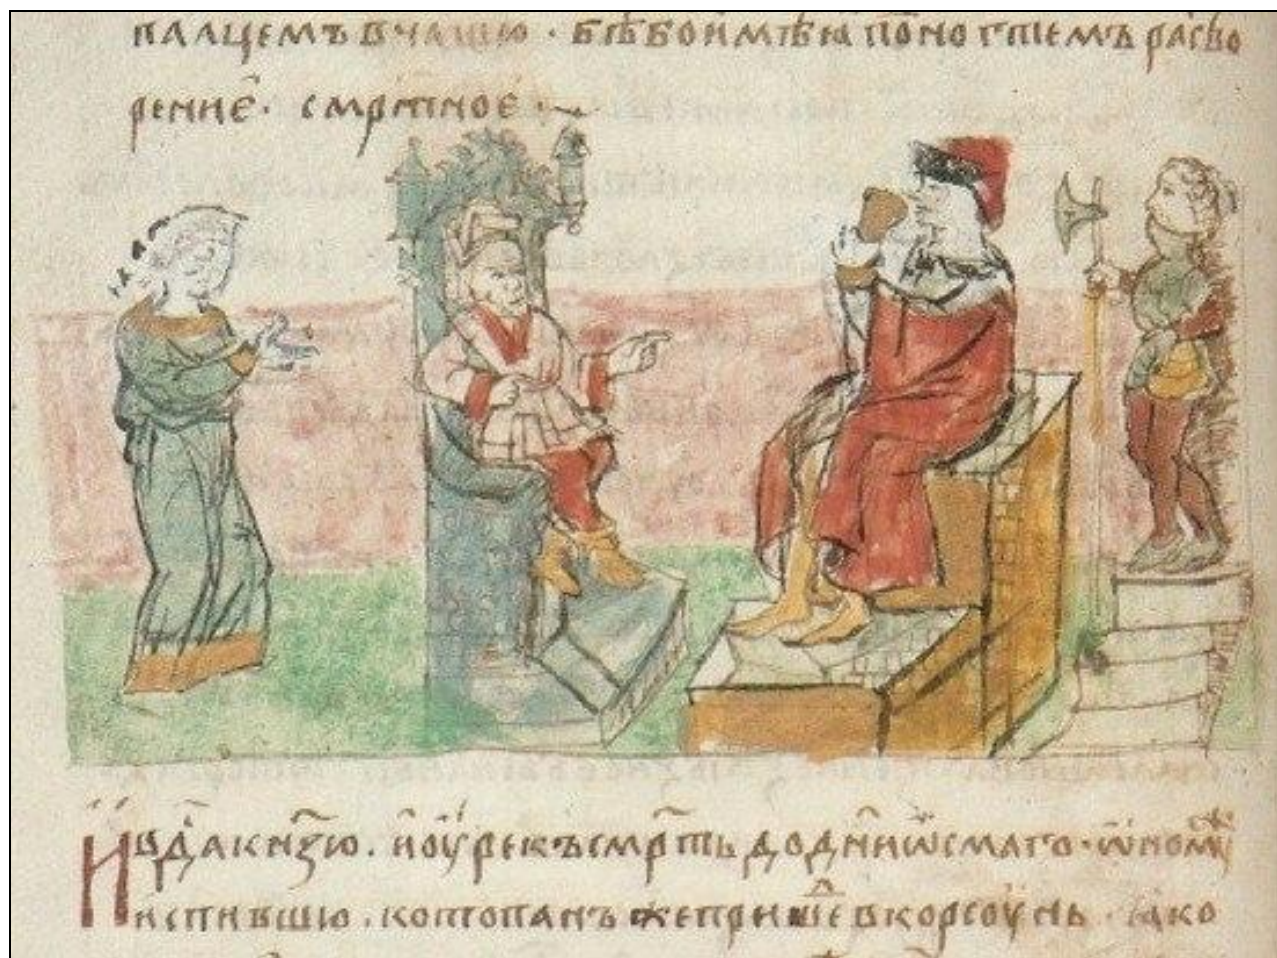 палцемъ в чашю · бѣ бо имѣꙗ по ногтемъ раство
рение҃ · смр҃тное ·
И вд҃а кнѧ҃зю · и оурекъ смр҃ть до дн҃и ѡсмаго · ѡному
испившю · котопанъ же прише҃ в корсоунь · ꙗко